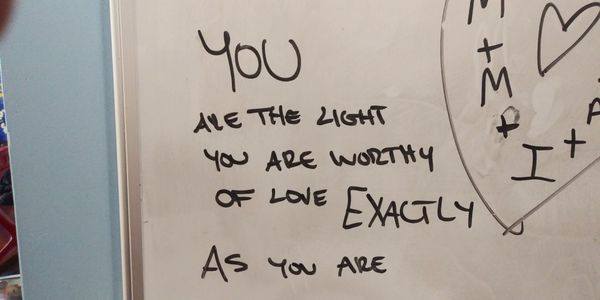 YOU
ARE THE LIGHT
YOU ARE WORTHY
OF LOVE EXACTLY
AS YOU ARE
M
+
M
+
I +
A